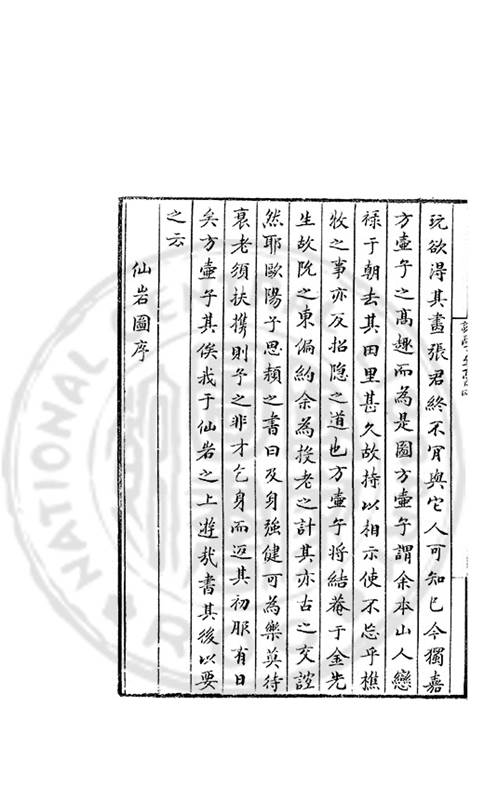 玩欲得其畫張君終不肎與它人可知已今獨嘉
方壷子之髙趣而為是圖方壷子謂余本山人戀
禄于朝去其田里甚久故持以相示使不忘乎樵
牧之事亦反招隐之道也方壷子将結菴于金先
生故阮之東偏約余為投老之計其亦古之交誼
然耶歐陽子思頴之書曰及身強健可為樂莫待
衰老須扶携則予之非才乞身而返其初服有日
矣方壷子其俟我于仙岩之上遊哉書其後以要
之云
仙岩圖序
NATIONAL CENTRAL